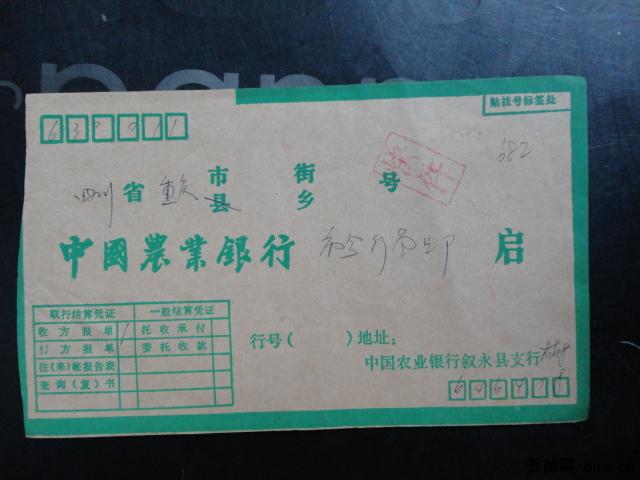 贴挂号标签处
630011
682
快件
四川省重庆市县街乡号
中國農業銀行 启
联行结算凭证 一般结算凭证
收方报单 1 托收承付
付方报单 委托收款
往(来)帐报告表
查询(复)书
行号( )地址:
中国农业银行叙永县支行